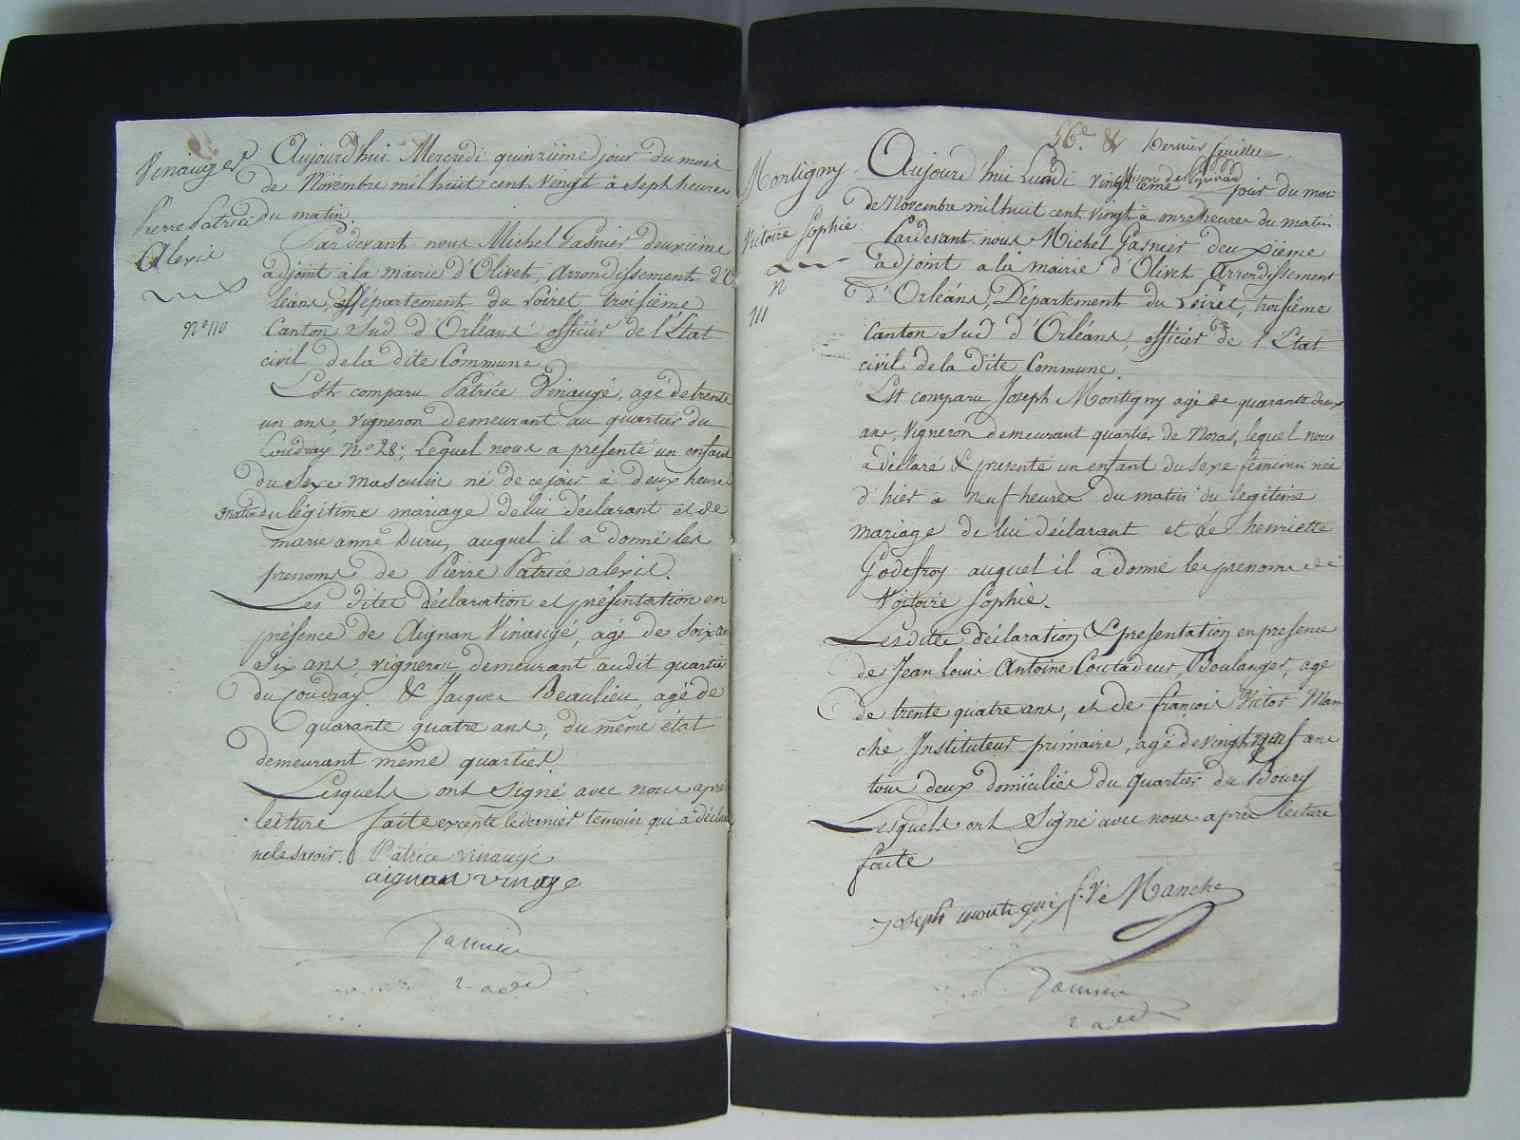 Vinauger
Pierre Patrice
Alexis
N° 110
Aujourd'hui Mercredi quinzième jour du mois
de Novembre mil huit cent vingt à Sept heures
du matin.
Pardevant nous Michel Gasnier deuxième
adjoint à la mairie d'Olivet, arrondissement d'Or
léans, Département du Loiret, troisième
Canton Sud d'Orléans officier de l'Etat
civil de la dite Commune
Est comparu Patrice Vinaugé, agé de trente
un ans, vigneron demeurant au quartier du
Coudray N° 28; Lequel nous a présenté un enfant
du Sexe masculin né de ce jour à deux heures
matin du légitime mariage de lui déclarant et de
marie anne Duru, auquel il a donné les
prenoms de Pierre Patrice alexis.
Les dites déclaration et présentation en
présence de Aignan Vinaugé, agé de soixante
Six ans, vigneron demeurant audit quartier
du Coudray. & Jacques Beaulieu, agé de
quarante quatre ans, du même état
demeurant même quartier.
Lesquels ont Signé avec nous après
lecture faite excepté le dernier temoin qui a déclaré
ne le savoir. Patrice vinaugé
aignan vinage
Gasnier
56.e & Dernier feuillet
Montigny
Victoire Sophie
N
111
Aujourd'hui Lundi vingtième jour du mois
de Novembre mil huit cent vingt à onze heures du matin
Pardevant nous Michel Gasnier deuxième
adjoint a la mairie d'Olivet, arrondissement
d'Orléans, Département du Loiret, troisième
Canton Sud d'Orléans, officier de l'Etat
civil de la dite Commune.
Est comparu Joseph Montigny agé de quarante deux
ans, Vigneron demeurant quartier de Noras, lequel nous
a déclaré & presenté un enfant du sexe féminin née
d'hier à neuf heures du matin du légitime
mariage de lui déclarant et de henriette
Godefroy auquel il a donné les prenoms de
Victoire Sophie.
Les dites déclaration & presentation en presence
de Jean Louis Antoine Coutadeur, Boulanger, agé
de trente quatre ans, et de françois Victor Man
che, Instituteur primaire, agé de vingt neuf ans
tous deux domiciliés du quartier du Bourg
Lesquels ont Signé avec nous après lecture
faite
joseph montigni f. V. Manche
Gasnier